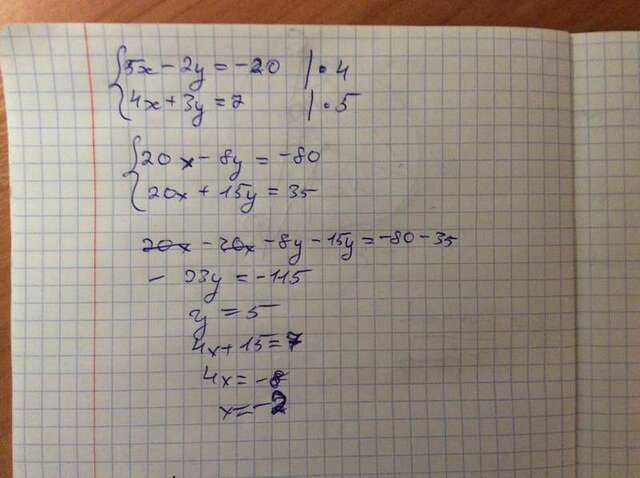 5x - 2y = -20 | • 4
4x + 3y = 7 | • 5
20x - 8y = -80
20x + 15y = 35
20x - 20x - 8y - 15y = -80 - 35
- 23y = -115
y = 5
4x + 15 = 7
4x = -8
x = -2